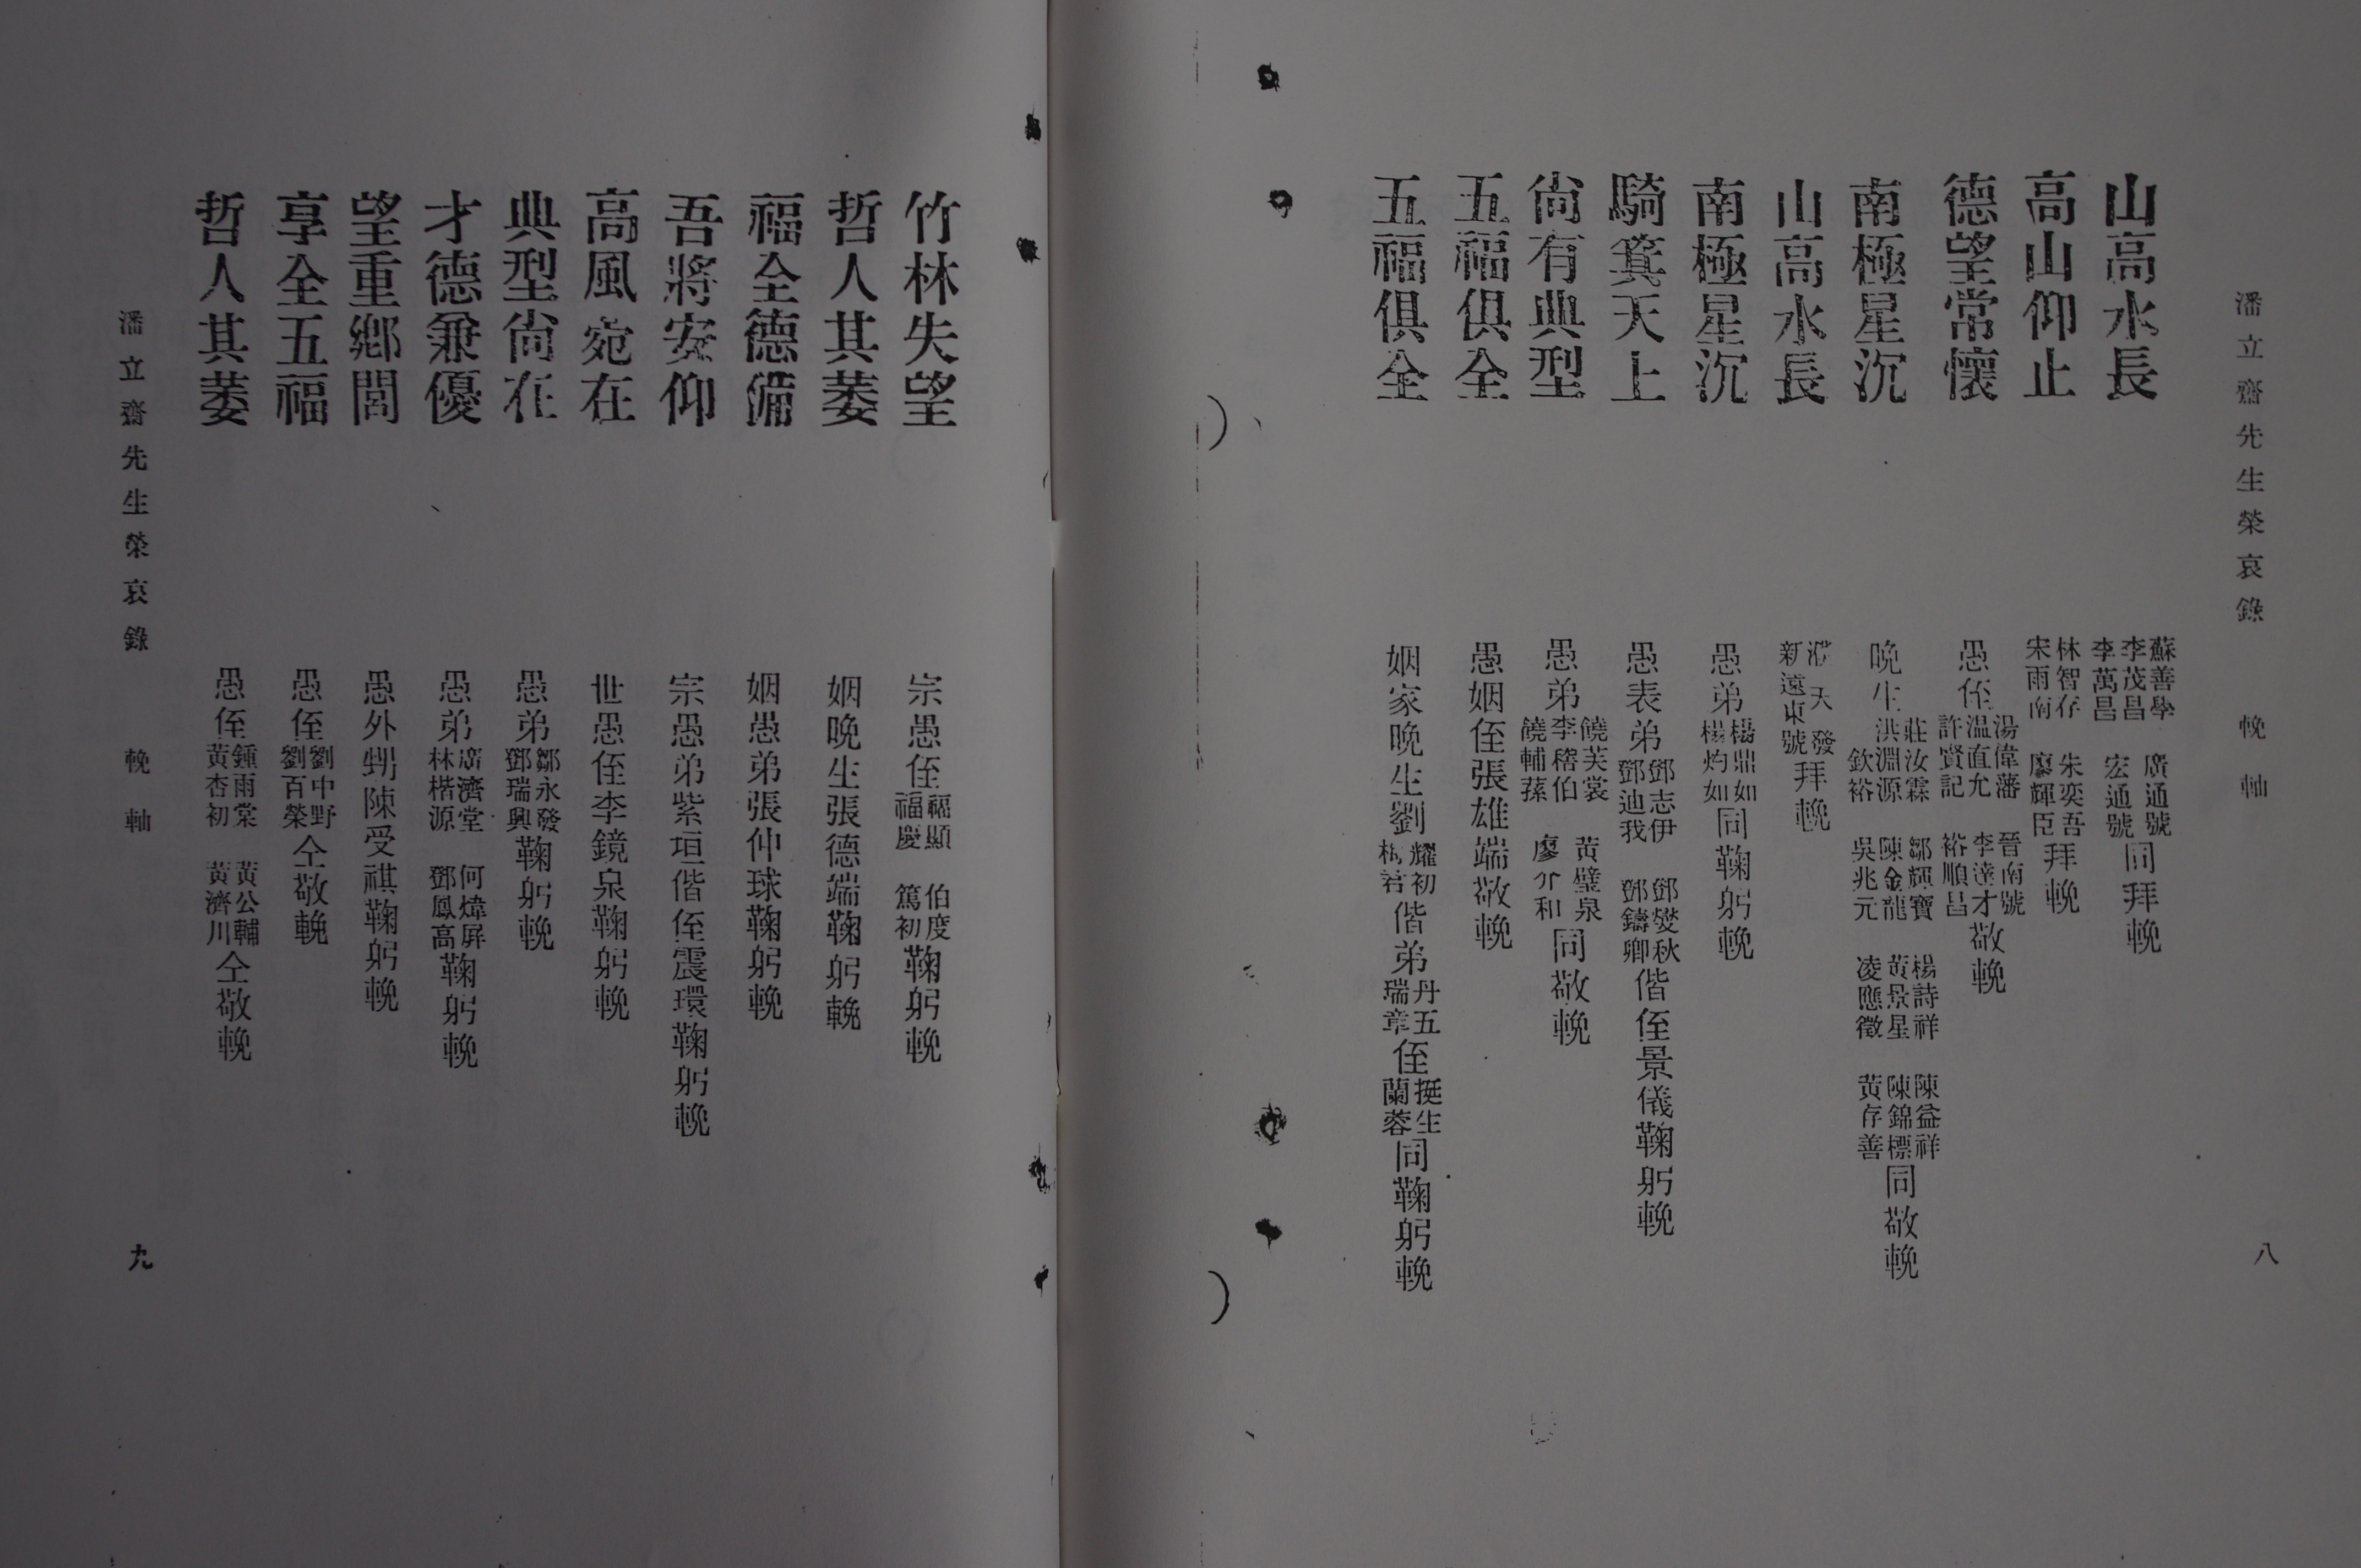 潘立齋先生榮哀錄 輓軸 八
山高水長 蘇善學 李茂昌 李萬昌 廣通號 宏通號 同拜輓
高山仰止 林智存 宋雨南 朱奕吾 廖輝臣 拜輓
德望常懷 愚侄 湯偉藩 溫直允 許賢記 晉南號 李達才 裕順昌 敬輓
南極星沉 晚生 莊汝霖 洪淵源 欽裕 鄒輝寶 陳金龍 吳兆元 楊詩祥 黃景星 凌應徵 陳益祥 陳錦標 黃存善 同敬輓
山高水長 天發 新遠東號 拜輓
南極星沉 愚弟 楊鼎如 楊灼如 同鞠躬輓
騎箕天上 愚表弟 鄧志伊 鄧迪我 鄧燮秋 鄧鑄卿 偕侄景儀鞠躬輓
尙有典型 愚弟 饒芙裳 李稽伯 饒輔蓀 黃璧泉 廖介和 同敬輓
五福俱全 愚姻侄張雄端敬輓
五福俱全 姻家晚生劉 耀初 偕弟 丹五 瑞章 侄 挺生 蘭蓉 同鞠躬輓
竹林失望 宗愚侄 福顯 福慶 伯度 篤初 鞠躬輓
哲人其萎 姻晚生張德端鞠躬輓
福全德備 姻愚弟張仲球鞠躬輓
吾將安仰 宗愚弟紫垣偕侄震環鞠躬輓
高風宛在 世愚侄李鏡泉鞠躬輓
典型尙在 愚弟 鄒永發 鄧瑞興 鞠躬輓
才德兼優 愚弟 廣濟堂 林楷源 何煒屏 鄧鳳高 鞠躬輓
望重鄉閭 愚外甥陳受祺鞠躬輓
享全五福 愚侄 劉中野 劉百榮 仝敬輓
哲人其萎 愚侄 鍾雨棠 黃杏初 黃公輔 黃濟川 仝敬輓
潘立齋先生榮哀錄 輓軸 九